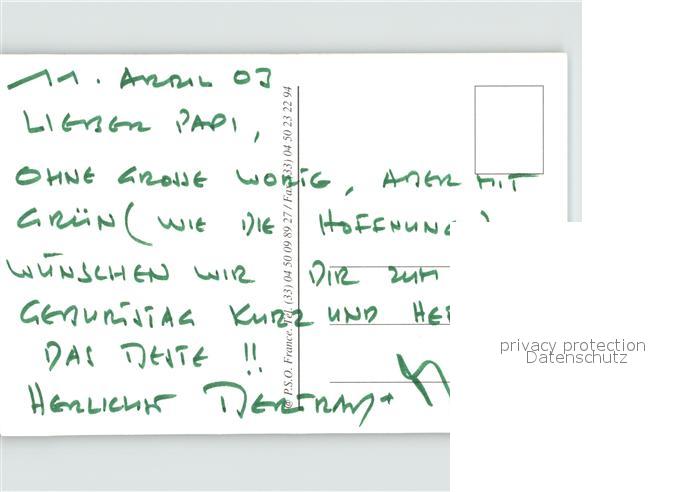 11. APRIL 03
LIEBER PAPI,
OHNE GROSSE WORTE, ABER MIT
GRÜN (WIE DIE HOFFNUNG)
WÜNSCHEN WIR DIR ZUM
GEBURTSTAG KURZ UND
DAS BESTE !!
HERZLICHST BERTRAM +
© P.S.O. France. Tél. (33) 04 50 09 89 27 / Fax (33) 04 50 23 22 94
privacy protection
Datenschutz